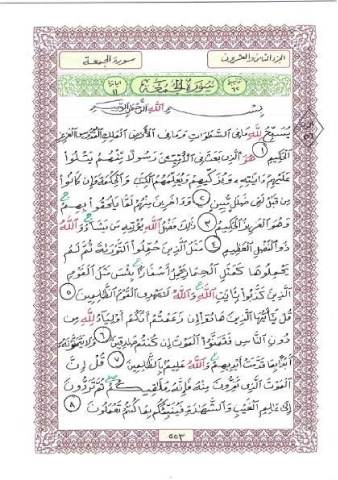 الجزء الثامن والعشرون
سورة الجمعة
سُورَةُ الجُمُعَةِ
٦٢
١١
بِسْمِ اللَّهِ الرَّحْمَٰنِ الرَّحِيمِ
يُسَبِّحُ لِلَّهِ مَا فِى السَّمَٰوَٰتِ وَمَا فِى الْأَرْضِ الْمَلِكِ الْقُدُّوسِ الْعَزِيزِ
الْحَكِيمِ ١ هُوَ الَّذِى بَعَثَ فِى الْأُمِّيِّۦنَ رَسُولًا مِّنْهُمْ يَتْلُوا۟
عَلَيْهِمْ ءَايَٰتِهِۦ وَيُزَكِّيهِمْ وَيُعَلِّمُهُمُ الْكِتَٰبَ وَالْحِكْمَةَ وَإِن كَانُوا۟
مِن قَبْلُ لَفِى ضَلَٰلٍ مُّبِينٍ ٢ وَءَاخَرِينَ مِنْهُمْ لَمَّا يَلْحَقُوا۟ بِهِمْ
وَهُوَ الْعَزِيزُ الْحَكِيمُ ٣ ذَٰلِكَ فَضْلُ اللَّهِ يُؤْتِيهِ مَن يَشَآءُ وَاللَّهُ
ذُو الْفَضْلِ الْعَظِيمِ ٤ مَثَلُ الَّذِينَ حُمِّلُوا۟ التَّوْرَىٰةَ ثُمَّ لَمْ
يَحْمِلُوهَا كَمَثَلِ الْحِمَارِ يَحْمِلُ أَسْفَارًا بِئْسَ مَثَلُ الْقَوْمِ
الَّذِينَ كَذَّبُوا۟ بِـَٔايَٰتِ اللَّهِ وَاللَّهُ لَا يَهْدِى الْقَوْمَ الظَّٰلِمِينَ ٥
قُلْ يَٰٓأَيُّهَا الَّذِينَ هَادُوٓا۟ إِن زَعَمْتُمْ أَنَّكُمْ أَوْلِيَآءُ لِلَّهِ مِن
دُونِ النَّاسِ فَتَمَنَّوُا۟ الْمَوْتَ إِن كُنتُمْ صَٰدِقِينَ ٦ وَلَا يَتَمَنَّوْنَهُۥٓ
أَبَدًۢا بِمَا قَدَّمَتْ أَيْدِيهِمْ وَاللَّهُ عَلِيمٌۢ بِالظَّٰلِمِينَ ٧ قُلْ إِنَّ
الْمَوْتَ الَّذِى تَفِرُّونَ مِنْهُ فَإِنَّهُۥ مُلَٰقِيكُمْ ثُمَّ تُرَدُّونَ
إِلَىٰ عَٰلِمِ الْغَيْبِ وَالشَّهَٰدَةِ فَيُنَبِّئُكُم بِمَا كُنتُمْ تَعْمَلُونَ ٨
٥٥٣